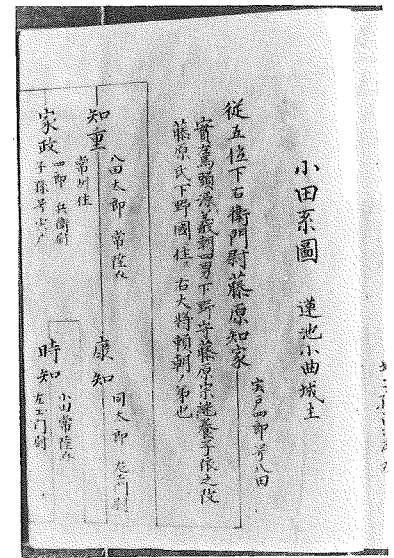 小田系圖　蓮池小曲城主
從五位下右衛門尉藤原知家
宍戸四郎号八田
實馬頭源義朝四男下野守藤原宗綱養子依之改
藤原氏下野國住右大将頼朝ノ弟也
知重
八田太郎　常陸介
常州住
家政
四郎　兵衛尉
子孫号宍戸
康知
同太郎　左衛門尉
時知
小田常陸介
左エ門尉